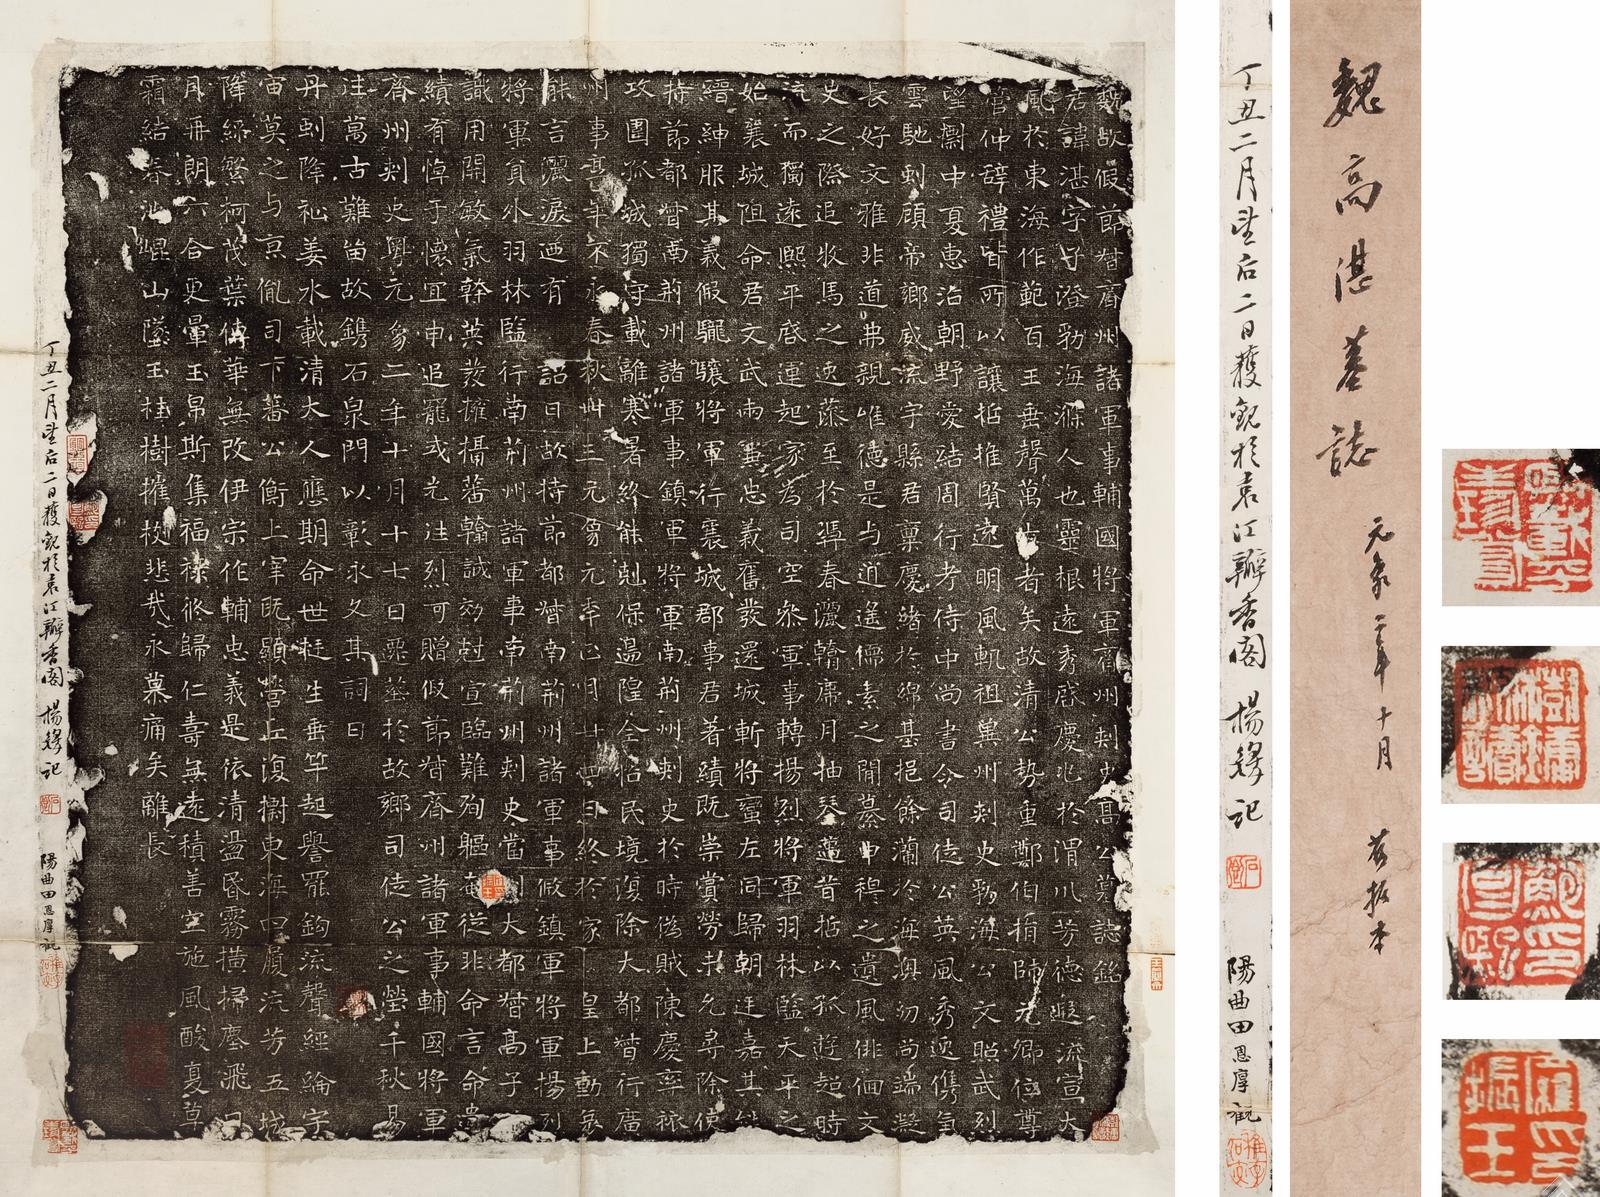 魏故假節督齊州諸軍事輔國將軍齊州刺史高公墓誌銘
君諱湛字子澄勃海滌人也靈根遠秀啟慶兆於渭川芳德遐流宣大
風於東海作範百王垂聲萬古者矣故清公勢重鄭伯捐師元卿位尊
管仲辭禮皆所以讓哲推賢遠明風軌祖冀州刺史勃海公文照武烈
望彰中夏惠洽朝野愛結周行考侍中尚書令司徒公英風秀逸儁氣
雲馳剖顧帝鄉威流宇縣君稟慶緒於綿基挹餘瀾於海奧勿尚端凝
長好文雅非道弗親唯德是与逍遙儒素之間慕申穆之遺風俳佪文
史之際追牧馬之逸藻至於羇春灑翰席月抽琴邁昔哲以孤遊超時
流而獨遠熙平啟運起家為司空參軍事轉揚烈將軍羽林監天平之
始襄城阻命君文武兩兼忠義奮發還城斬將蠻左同歸朝廷嘉其能
縉紳服其義假驪驤將軍行襄城郡事君著績既崇賞勞未允尋除使
持節都督南荊州諸軍事鎮軍將軍南荊州刺史於時偽賊陳慶率旅
攻圍孤城獨守載離寒暑終能剋保邊隍全怗民境復除大都督行廣
州事享年不永春秋卌三元象元年正月廿四日終於家皇上動哀
能言灑淚迺有詔曰故持節都督南荊州諸軍事假鎮軍將軍揚烈
將軍員外羽林監行南荊州諸軍事南荊州刺史當州大都督高子
識用開敏氣幹英發擁攝蕃翰誠効尅宣臨難殉軀奄從非命言命
績有悼于懷宜申追寵或光往烈可贈假節督齊州諸軍事輔國將軍
齊州刺史粵元象二年十月十七日遷葬於故鄉司徒公之塋千秋易
往萬古難留故鐫石泉門以彰永久其詞曰
丹剖降祉姜水載清大人應期命世挺生垂竿起譽罷鈞流聲經綸宇
宙莫之与京胤司下蕃公衡上宰既顯營丘復彰東海四履流芳五城
降綵繁柯茂葉傳華無改伊宗作輔忠義是依清盪昏霧橫掃塵飛日
再朗六合更暈玉帛斯集福祿攸歸仁壽無遠積善空施風酸夏草
霜結春池崐山墜玉桂樹摧枝悲哉永慕痛矣離長
丁丑二月望后二日獲觀於袁江瓣香閣 楊鐸記
陽曲田恩厚觀
丁丑二月望后二日獲觀於袁江瓣香閣 楊鐸記
陽曲田恩厚觀
魏高湛墓誌 元象二年十月 舊拓本